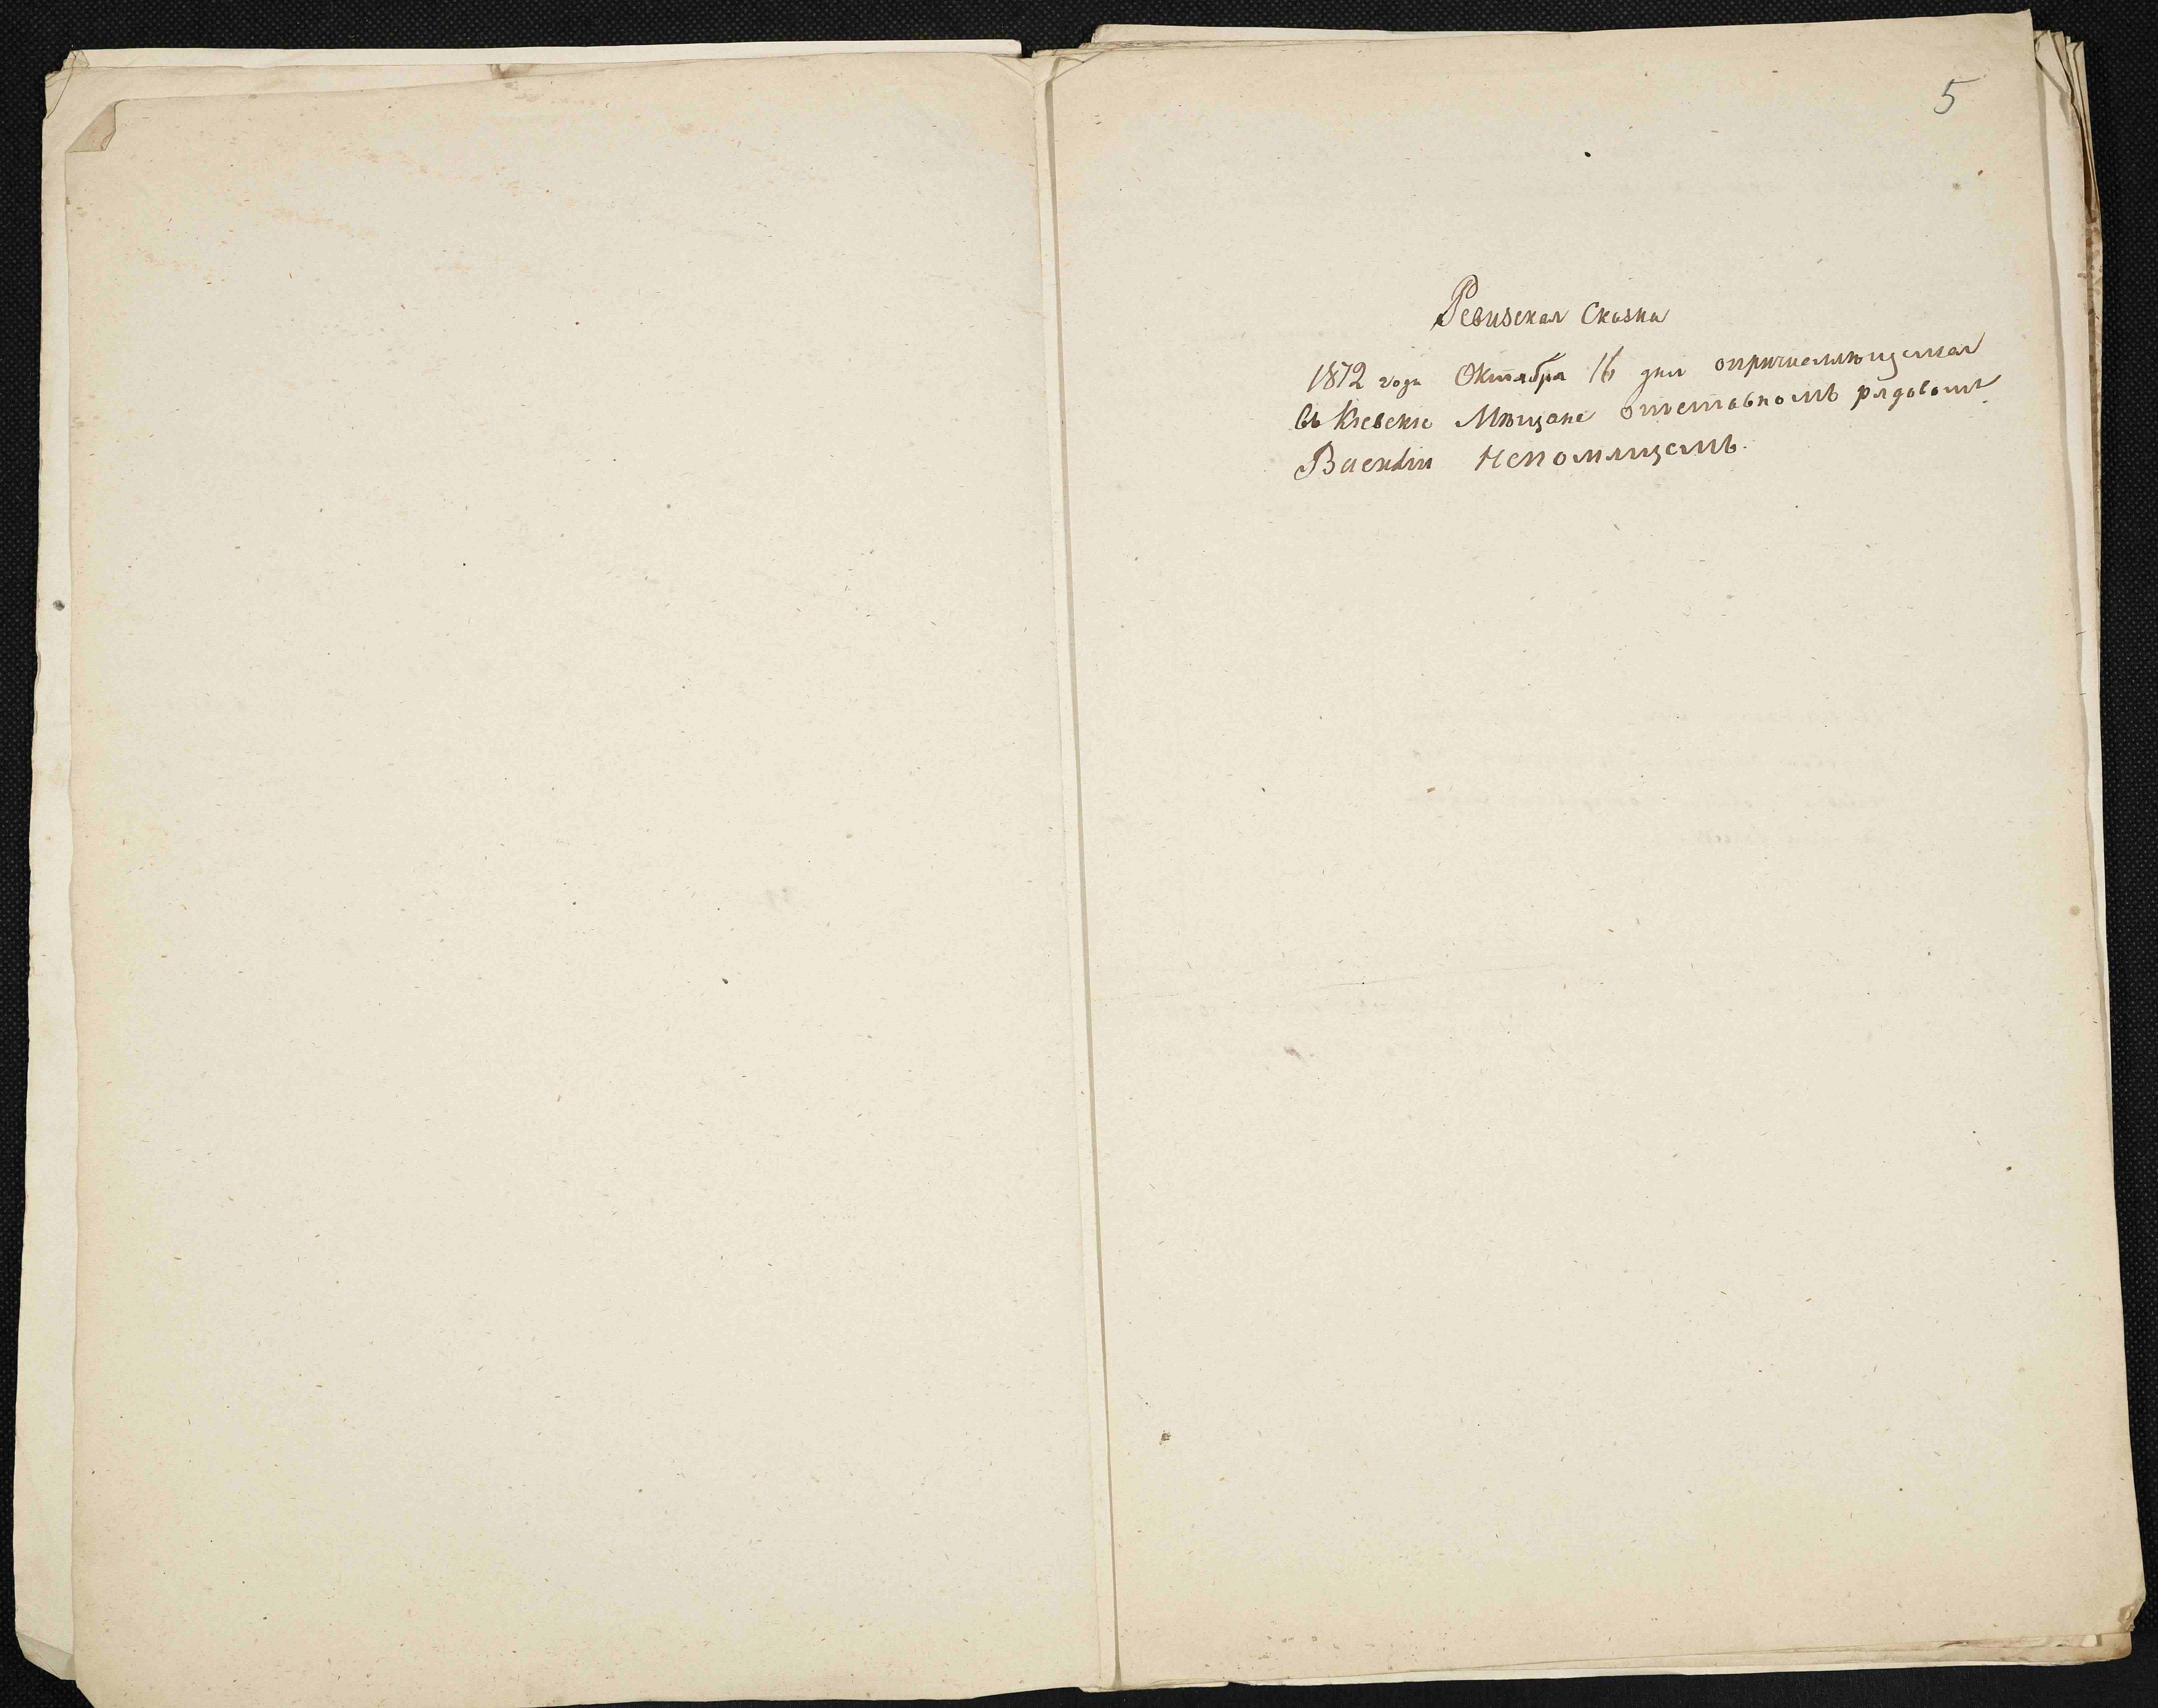 5
Ревизская Сказка
1872 года Октября 16 дня о причисляющемся
въ Кіевскіе Мѣщане отставномъ рядовомъ
Василіи Непомнящемъ.